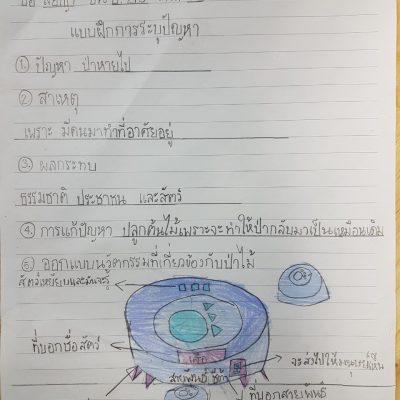 แบบฝึกการระบุปัญหา
① ปัญหา ป่าหายไป
② สาเหตุ
เพราะ มีคนมาทำที่อาศัยอยู่
③ ผลกระทบ
ธรรมชาติ ประชาชน และสัตว์
④ การแก้ปัญหา ปลูกต้นไม้เพราะจะทำให้ป่ากลับมาเป็นเหมือนเดิม
⑤ ออกแบบนวัตกรรมที่เกี่ยวข้องกับป่าไม้
สัตว์เหยียบและมันจะรู้
ที่บอกชื่อสัตว์
จะส่งไปให้มนุษย์เห็น
สายพันธุ์
ที่บอกสายพันธุ์